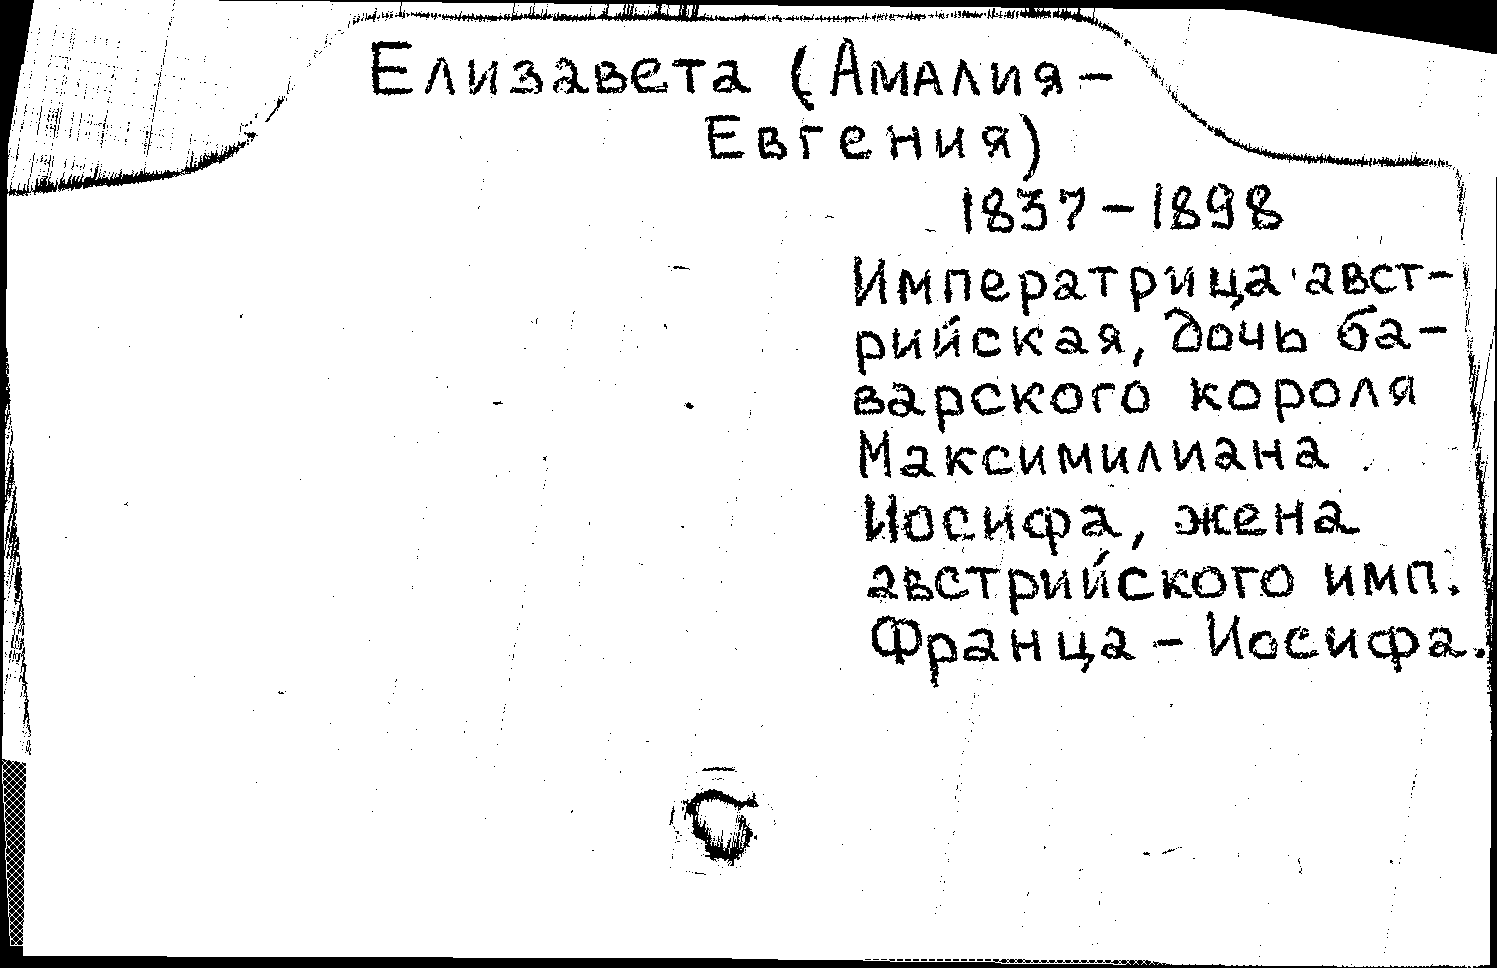 Елизавета (Амалия-
Евгения)
1837-1898
Императрица авст-
рийская, дочь ба-
варского короля
Максимилиана
Иосифа, жена
австрийского имп.
Франца-Иосифа.